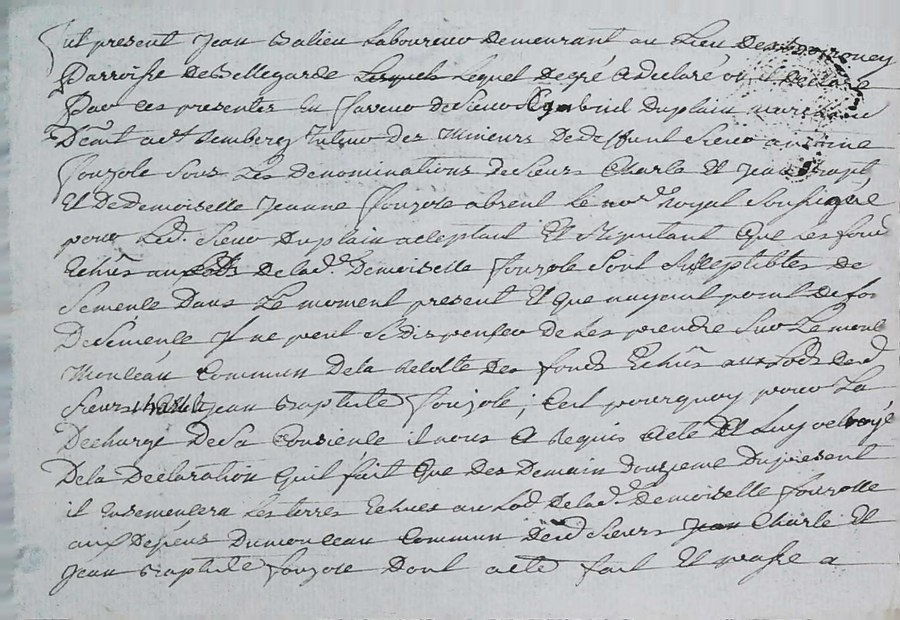 fut present Jean Valieu Laboureur demeurant au Lieu des
Parroisse de Bellegarde Lesquels Lequel de gré a declaré
Par ces presentes en faveur de Sieur Gabriel Duplain
tuteur des Mineurs de deffunt Sieur antoine
fouzole Sous Les Denominations de Sieurs Charle Et Jean Bapt,
Et De Demoiselle Jeanne fouzole absent Le nore Royal Soussigné
pour Led. Sieur Duplain acceptant Et stipulant Que Les fonds
Echûs aux Lods de lad.e Demoiselle fouzole Sont Suseptibles de
Semence Dans Le moment present Et que nayant point de
De Semence Il ne peut se dispenser de Les prendre Sur Le mon
monceau Commun de la recolte des fonds Echûs aux Lods desd
Sieurs Charle Jean Baptiste fouzole ; Cest pourquoy pour La
Decharge De Sa Consience il nous a Requis acte Et Luy octroyé
De la Declaration quil fait Que des Demain douzieme Du present
il ensemencera Les terres Echues au Lod de lad.e Demoiselle fouzolle
aux Depens Du monceau Commun desd Sieurs Jean Charle Et
Jean Baptiste fouzole Dont acte fait Et passé a